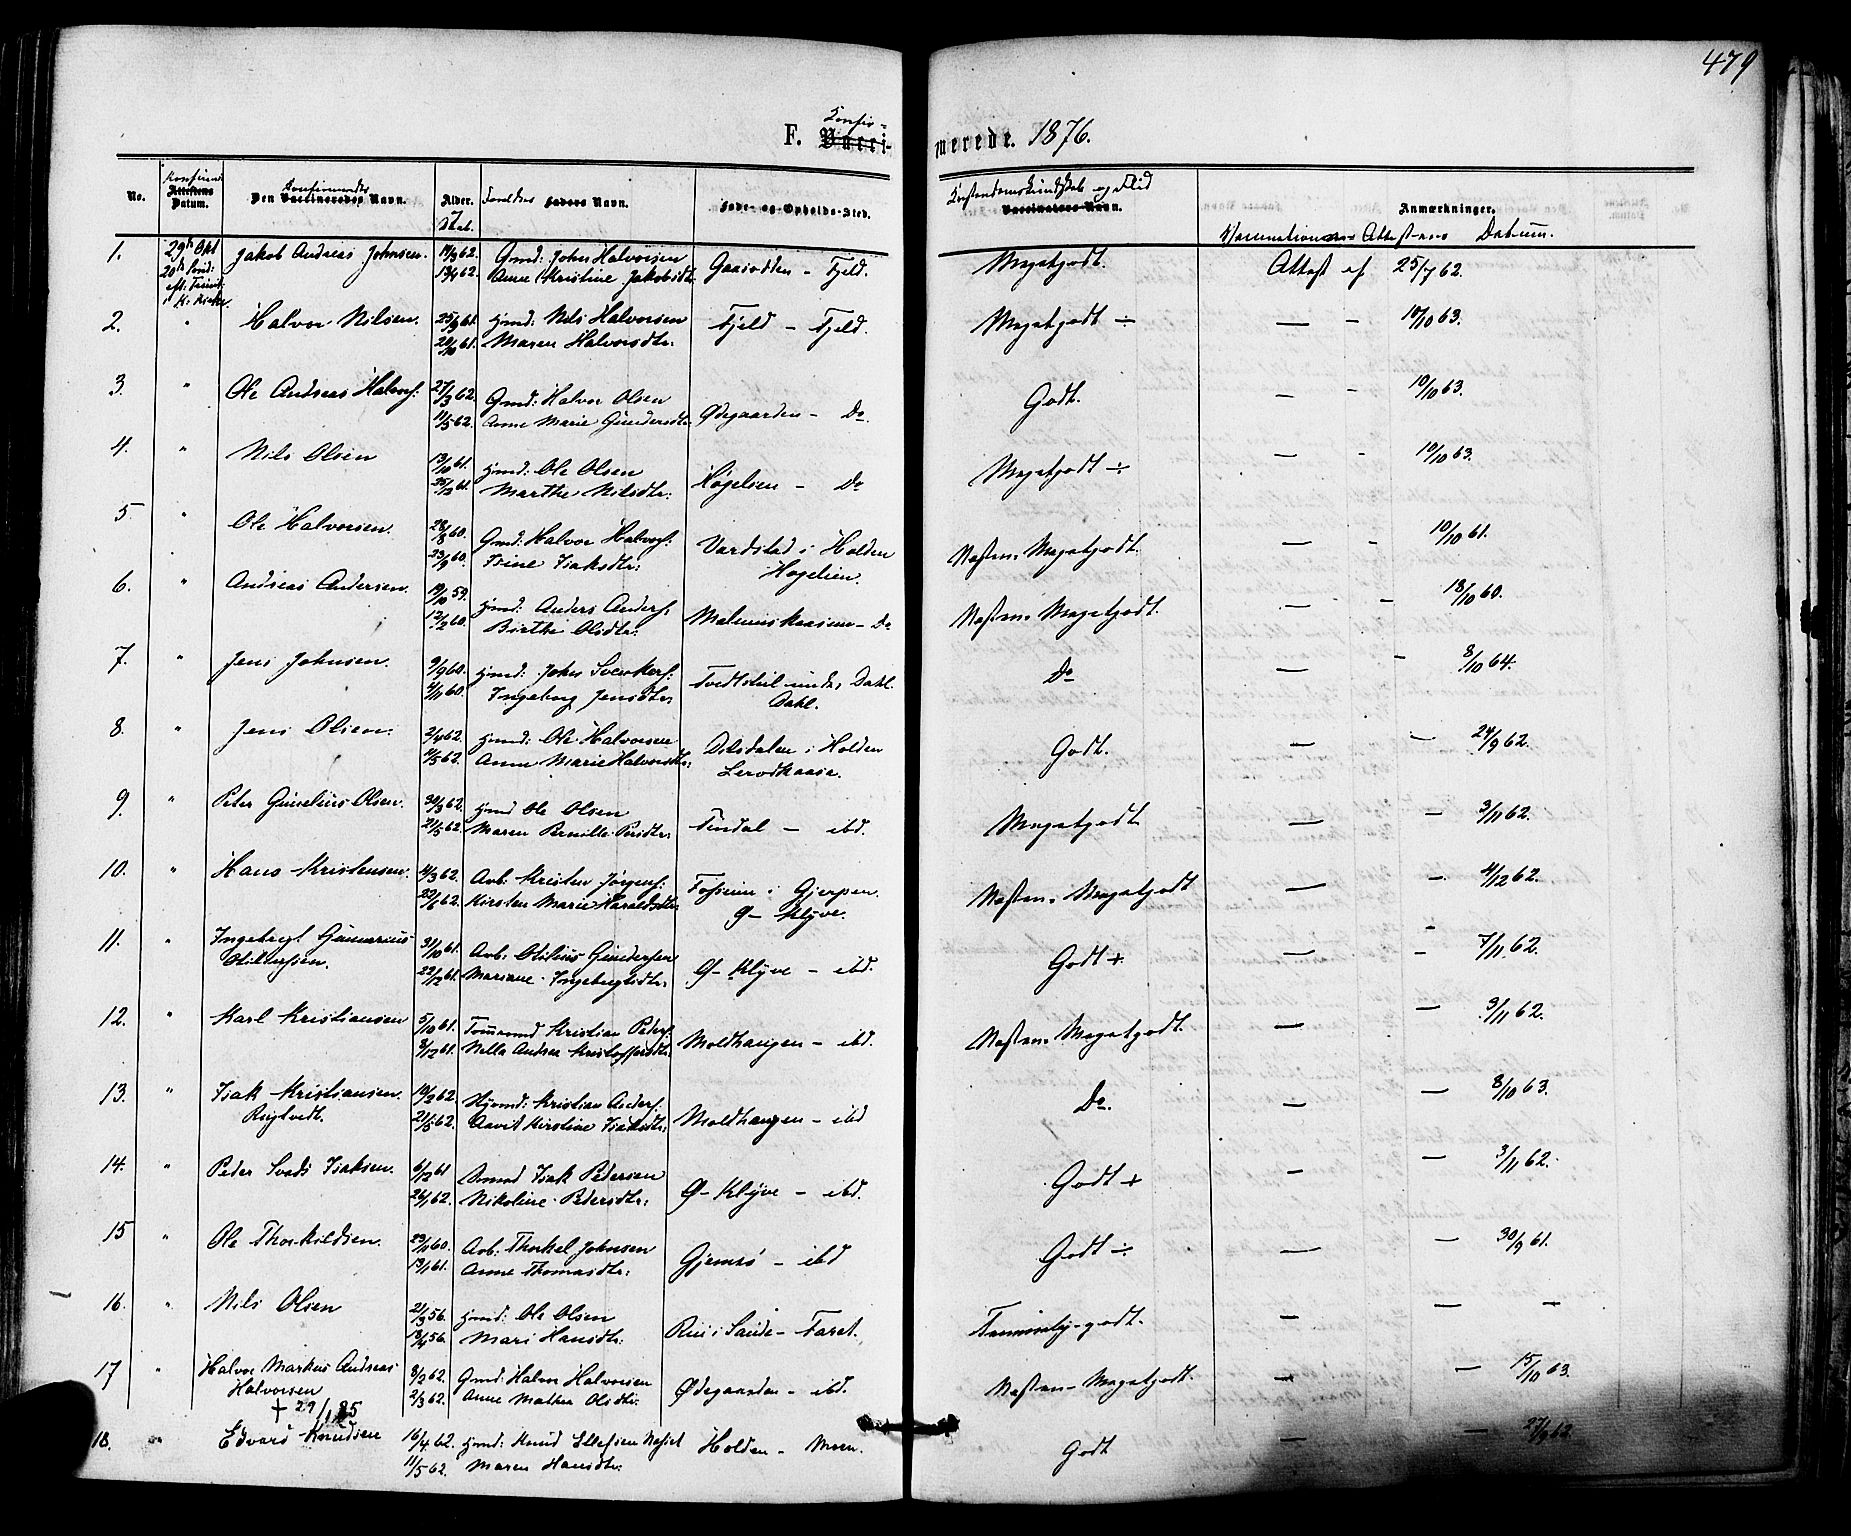 479
Konfir-
F. Vacci-
nerede. 1876.
No.
Konfirm:
Attestens
Datum.
Konfirmandes
Den Vaccineredes Navn.
Alder.
Daab.
Forældres
Faders Navn.
Føde- og Opholds-Sted.
Kristendomskundskab og Flid
Vaccinators Navn.
Anmærkninger.
Vaccinations Attestens Datum.
1. 29de Okt Jakob Andreas Johnsen. 19/3 62. Gmd: John Halvorsen
13/4 62. Anne Kristine Jakobsdtr. Gaasodden – Fjeld. Megetgodt. Attest af 25/7 62.
2. " Halvor Nilsen. 25/9 61. Gmd: Nils Halvorsen
20/10 61. Maren Halvorsdtr: Fjeld – Fjeld. Megetgodt ÷ — – 10/10 63.
3. " Ole Andreas Halvors: 27/3 62. Gmd: Halvor Olsen
11/5 62. Anne Marie Gundersdtr. Ødegaarden – Do. Godt. — – 10/10 63.
4. " Nils Olsen 13/10 61. Gmd: Ole Olsen
25/12 61. Marthe Nilsdtr: Høgelien – Do Megetgodt ÷ — – 10/10 63.
5. " Ole Halvorsen. 28/8 60. Gmd: Halvor Halvors:
23/9 60. Trine Isaksdtr: Vardstad i Holden
Høgelien. Næsten Megetgodt. — – 10/10 61.
6. " Andreas Andersen. 19/10 59. Gmd: Anders Anders:
12/2 60. Birthe Olsdtr: – Do Næsten Megetgodt. — – 18/10 60.
7. " Jens Johnsen. 9/9 60. Gmd: John
4/11 60. Ingeborg Jensdtr: under Dahl.
Dahl. Do — – 8/10 64.
8. " Jens Olsen. 2/4 62. Gmd: Ole Halvorsen
11/5 62. Anne Marie Halvorsdtr: i Holden
Godt. — — 24/9 62.
9. " Peter Olsen. 30/3 62. Gmd Ole Olsen
21/5 62. Maren Pernille Persdtr: Findal – ibd. Megetgodt — – 3/11 62.
10. " Hans Kristensen. 4/3 62. Arb: Kristen Jørgens:
22/6 62. Kirsten Marie Haraldsdtr: Fossum i Gjerpen.
G– Klyve. Næsten Megetgodt — – 4/12 62.
11. " Ingebregt Gunerius
31/10 61. Arb: Otilius Gundersen
22/12 61. Mariane Ingebregtsdtr: G– Klyve – ibd. Godt + — – 7/11 62.
12. " Karl Kristiansen 5/10 61. Tømmermd Kristian Peders:
8/12 61. Nella Andrea Kristoffersdtr: Moldhaugen – ibd. Næsten Megetgodt. — — 3/11 62.
13. " Isak Kristiansen
Rugtvedt. 10/2 62. Kristian Anders:
21/5 62. Kirstine Isaksdtr: Moldhaugen – ibd Do. — — 8/10 63.
14. " Peder Isaksen. 6/12 61 Isak Pedersen
26/1 62. Nikoline Pedersdtr: G– Klyve – ibd. Godt + — — 3/11 62.
15 " Ole Thorkildsen. 23/11 60. Arb: Thorkel Johnsen
13/1 61. Anne Thomasdtr: Gjemsø – ibd Godt ÷ — — 30/9 61.
16. " Nils Olsen 21/3 56. Gmd: Ole Olsen
13/4 56. Mari Hansdtr: i Saude – Faret. Temmelig godt. — — –
17 " Halvor Markus Andreas
Halvorsen 8/2 62. Gmd: Halvor Halvorsen
2/3 62. Anne Mathea Olsdtr: Ødegaarden – ibd. Næsten Megetgodt. — — 15/10 63.
† 29/1 85
18. " Edvard Knudsen 16/4 62. Gmd: Knud Ellefsen
11/5 62. Maren Hansdtr: Holden – Moen. Godt — — 27/9 62.